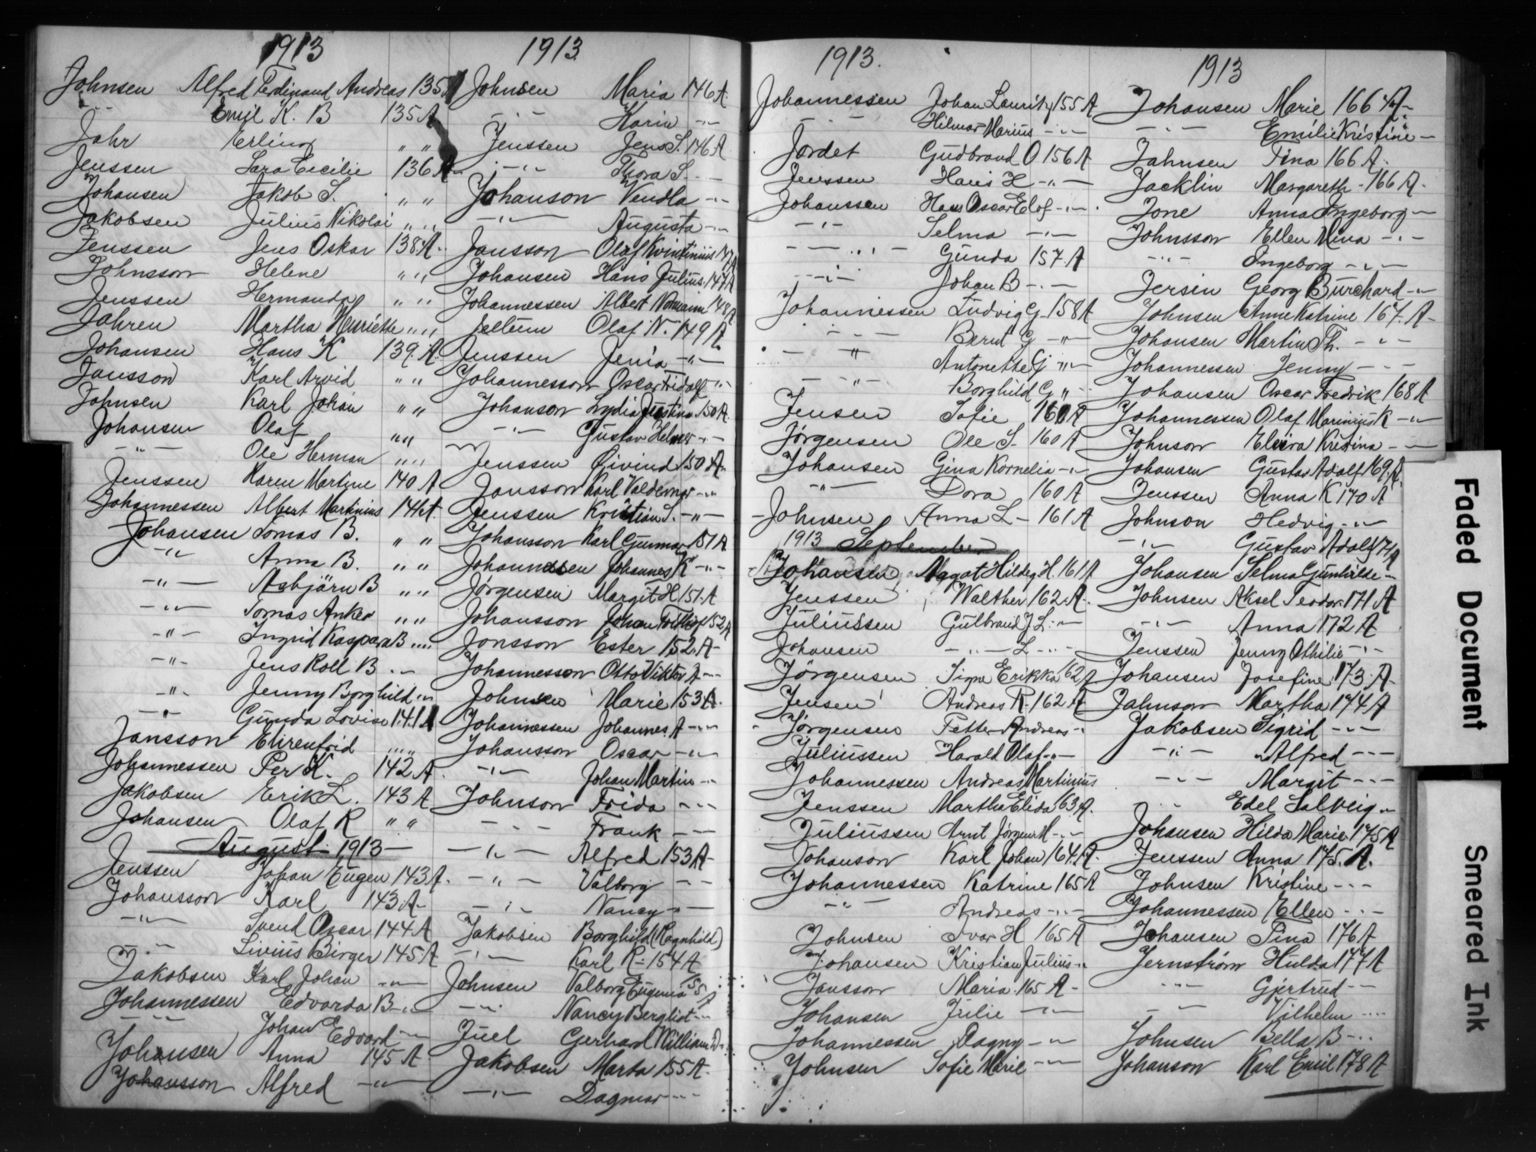 1913
Johnsen Alfred Ferdinand Andreas 135A
-"- Emil K. B 135A
Jahr Erling " "
Jenssen Sara Cecilie 136A
Johansen Jakob S. " "
Jakobsen Julius Nikolai " "
Jenssen Jens Oskar 138A.
Johnsson Helene " "
Jenssen Hermanda " "
Jahren Martha Henriette " "
Johansen Hans K 139A.
Jansson Karl Arvid " "
Johnsen Karl Johan " "
Johansen Olaf " "
-"- Ole Herman " "
Jenssen Karen Martine 140A
Johannessen Albert Martinius 141A.
Johansen Tomas B. " "
-"- Anna B. " "
-"- Asbjörn B " "
-"- Tomas Anker " "
-"- Ingrid Kaspara B " "
-"- Jens Roll B - -
-"- Jenny Borghild -"-
-"- Gunda Lovise 141A
Jansson Ehrenfrid " "
Johannessen Per K. 142A
Jakobsen Erik L. 143A
Johansen Olaf R " "
August 1913
Jenssen Johan Eugen 143A.
Johansson Karl 143A
-"- Svend Oscar 144A
-"- Livius Birger 145A
Jakobsen Karl Johan -"-
Johannessen Edvarda B -"-
-"- Johan Edvard -"-
Johansen Anna 145A
Johansson Alfred -"-
1913
Johnsen Maria 146A
-"- Karin -"-
Jenssen Jens S. 146A
-"- Thora S. - -
Johanson Vendla - -
-"- Augusta - -
Jansson Olaf Kvintinius 147A
Johansen Hans Julius 147A
Johannessen Albert 148A
Olaf N - 149A
Jenssen Jenia -"-
Johannesson Oscar Fidolf -"-
Johanson Lydia Justina 150A
-"- Gustav Helmer - -
Jenssen Eivind 150A
Jansson Karl Valdemar -"-
Jenssen Kristian S. -"-
Johansson Karl Gunnar 151A
Johannessen Johannes K -"-
Jørgensen Margit H 151A
Johansson Johan Fritthiof 152A
Jonsson Ester 152A-
Johannesson Otto Viktor A - -
Johnsen Marie 153A.
Johannessen Johannes A - -
Johansson Oscar -"-
-"- Johan Martin - -
Johnson Frida - - -
-"- Frank - - -
-"- Alfred 153A-
-"- Valborg - -
-"- Nancy - -
Jakobsen Borghild (Ragnhild)
-"- Karl R - 154A
Johnsen Valborg Eugenia 155A
-"- Nancy Bergliot - -
Juel Gerhard William D -
Jakobsen Marta 155A.
-"- Dagmar - - -
1913.
Johannessen Johan Lauritz 155A
-"- Hilmar Marius - - -
Jordet Gudbrand O 156A
Jenssen Hans H -"-
Johanssen Hans Oscar Elof -"-
-"- Selma -"-
-"- Gunda 157A
-"- Johan B -"-
Johannessen Ludvig G - 158A
-"- Bernt G -"-
-"- Antonette G -"-
-"- Borghild G "
Jensen Sofie 160A
Jørgensen Ole S. 160A
Johansen Gina Kornelia -"-
-"- Dora 160A
Johnsen Anna L - 161A
1913 September
Johansen Magot Hildeg H. 161A
Jenssen Walther 162A.
Juliussen Gulbrand J L. -
Johansen -"- L -"-
Jørgensen Signe Erikka 162A
Jensen Andreas R. 162A
Jørgensen Petter Andreas -"-
Juliussen Harald Olaf -"-
Johannessen Andreas Martinius
Jenssen Martha Elida 163A.
Juliussen Arnt Jørgen M - -
Johanson Karl Johan 164A.
Johannessen Katrine 165A
-"- Andreas -"-
Johnsen Ivar H 165A
Johansen Kristian Julius -"-
Jansson Maria 165A-
Johansen Julie -"-
Johannessen Dagny -"-
Johnsen Sofie Marie -"-
1913
Johansen Marie 166A-
-"- Emilie Kristine -
Jahnsen Tina 166A-
Jacklin Margareth - 166A-
Jone Anna Ingeborg -
Johnsson Ellen Mina -"-
-"- Ingeborg -"-
Jersin Georg Burchard -"-
Johnsen Anne Katrine 167A-
Johansen Martin Th. -"-
Johannessen Jenny - -
Johansen Oscar Fredrik 168A
Johannessen Olaf Marinius K -"-
Johnson Elvira Kristina - -
Johansen Gustav Adolf 169A.
Jenssen Anna K 170A
Johnson Hedvig -"-
-"- Gustav Adolf 171A
Johansen Selma Gunhilde -
Johnsen Aksel Teodor 171A
-"- Anna 172A
Jenssen Jenny Othilie - -
Johansen Josefine 173A
Jahnson Martha 174A
Jakobsen Sigrid - - -
-"- Alfred - - -
-"- Margit - - -
-"- Edel Salveig -"-
Johansen Hilda Marie 175A
Jenssen Anna 175A.
Johnsen Kristine - - -
Johannessen Ellen - - -
Johansen Tina 176A
Jernstrøm Hulda 177A
-"- Gjertrud - -
-"- Vilhelm - - -
Johnsen Bella B - - -
Johanson Karl Emil 178A
Faded Document
Smeared Ink